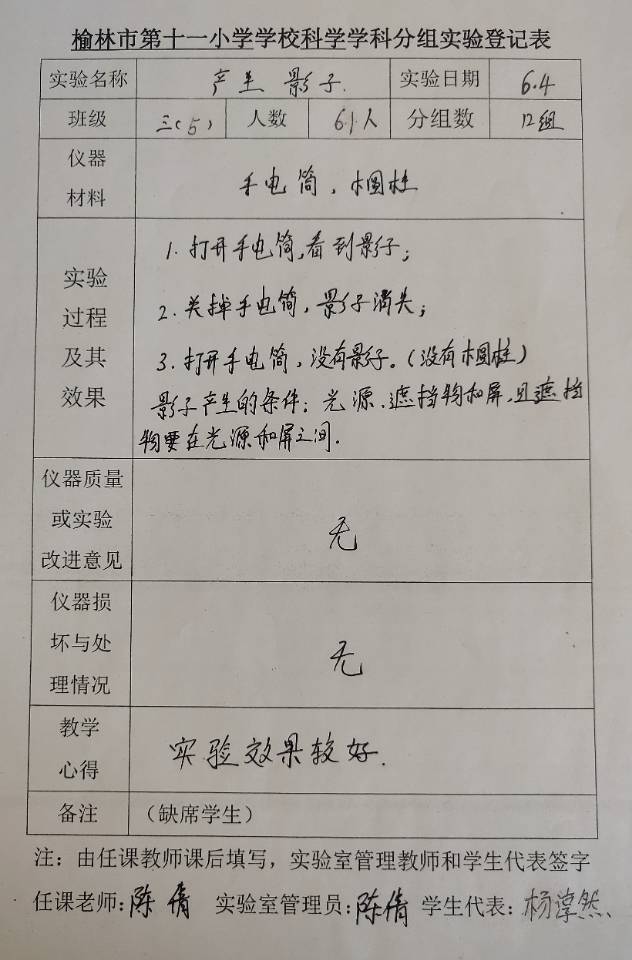 榆林市第十一小学学校科学学科分组实验登记表
实验名称 产生影子 实验日期 6.4
班级 三(5) 人数 61人 分组数 12组
仪器
材料
手电筒、木圆柱
实验
过程
及其
效果
1. 打开手电筒,看到影子;
2. 关掉手电筒,影子消失;
3. 打开手电筒,没有影子。(没有木圆柱)
影子产生的条件:光源、遮挡物和屏,且遮挡
物要在光源和屏之间.
仪器质量
或实验
改进意见
无
仪器损
坏与处
理情况
无
教学
心得
实验效果较好.
备注 (缺席学生)
注:由任课教师课后填写,实验室管理教师和学生代表签字
任课老师:陈倩 实验室管理员:陈倩 学生代表:杨淳然